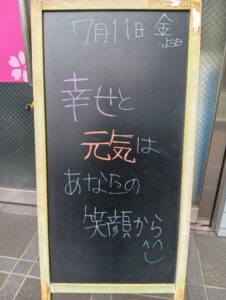 7月11日 金よう日
幸せと
元気は
あなたの
笑顔から